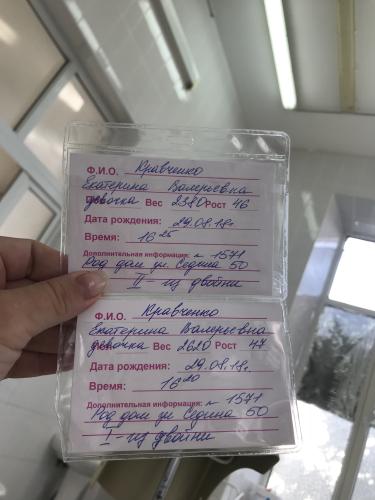 Ф.И.О. Кравченко
Екатерина Валерьевна
девочка Вес 2380 Рост 46
Дата рождения: 29.08.18г.
Время: 16 25
Дополнительная информация: 1571
Род дом ул. Седина 50
II - из двойни
Ф.И.О. Кравченко
Екатерина Валерьевна
девочка Вес 2620 Рост 47
Дата рождения: 29.08.18г.
Время: 16 20
Дополнительная информация: 1571
Род дом ул Седина 50
I - из двойни